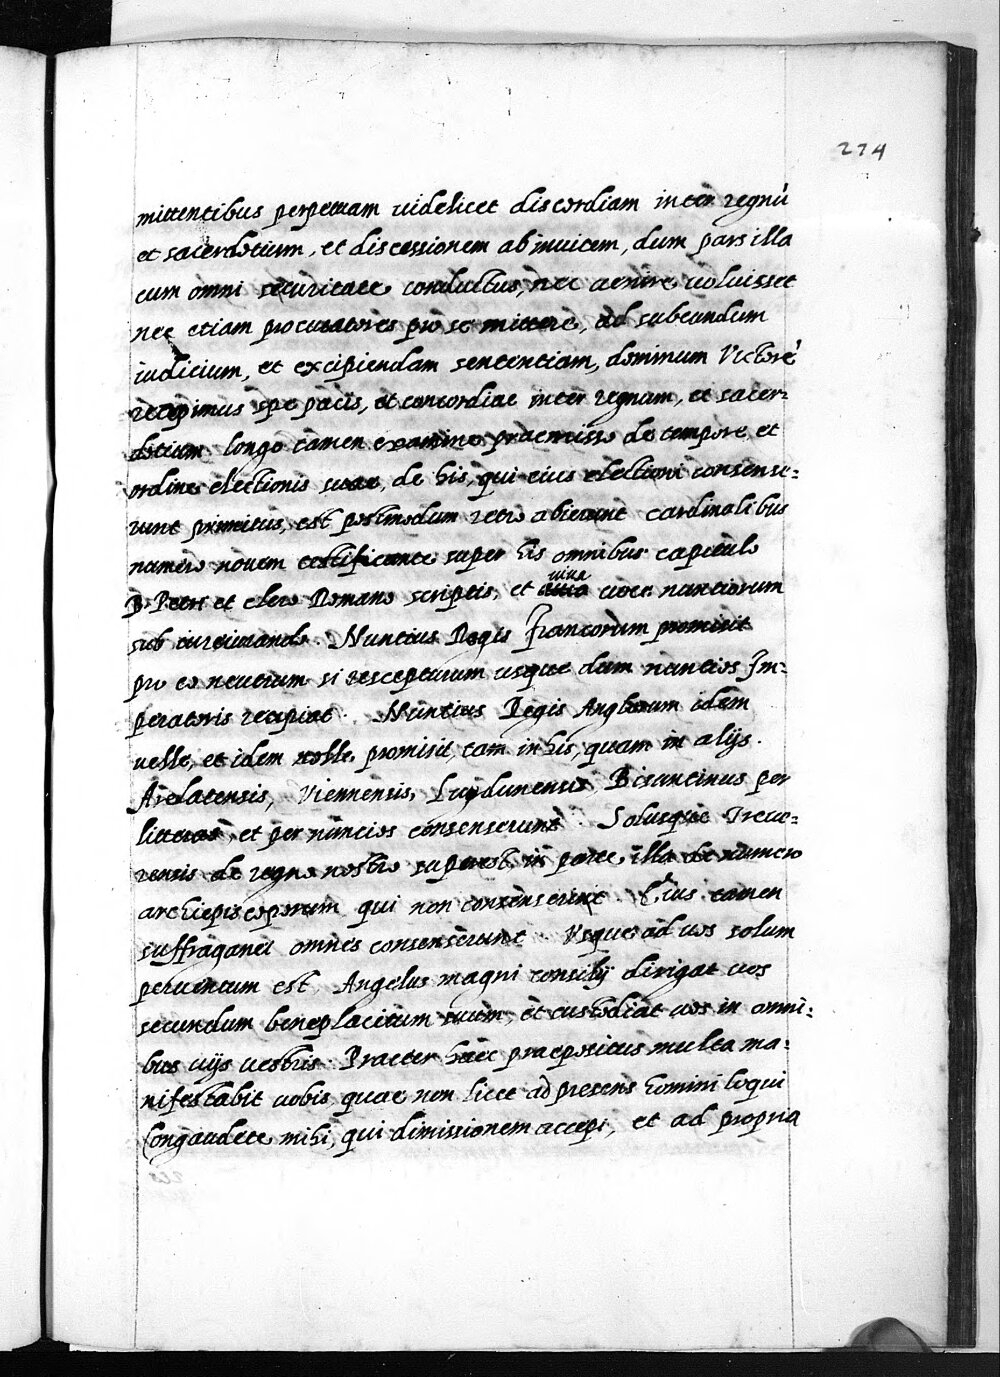 274
mittentibus perpetuam uidelicet discordiam inter regnũ
et sacerdotium, et discessionem ab inuicem, dum pars illa
cum omni securitate conductus, nec uenire uoluisset
nec etiam procuratores pro se mittere, ad subeundum
iudicium, et excipiendam sententiam, dominum Victorẽ
recepimus spe pacis, et concordiae inter regnum, et sacer=
dotium longo tamen examine praemisso de tempore, et
ordine electionis suae, de his, qui eius electioni consense=
runt primitus, est postmodum retro abierunt cardinalibus
numero nouem testificante super his omnibus capitulo
B. Petri et clero Romano scriptis, et uiua uoce nuntiorum
sub iureiurando. Nuntius Regis francorum promisit
pro eo neutrum si recepturum usque dum nuntios Im=
peratoris recipiat. Nuntius Regis Anglorum idem
uelle, et idem nolle promisit, tam in his, quam in alijs.
Arelatensis, Viennensis, Lugdunensis, Bisuntinus per
litteras, et per nuncios consenserunt. Solusque Treue=
rensis de regno nostro superest in parte illa de numero
archiepiscoporum qui non consenserint. Eius tamen
suffraganei omnes consenserunt. Usque ad uos solum
peruentum est, Angelus magni consilij dirigat uos
secundum beneplacitum suum, et custodiat uos in omni=
bus uijs uestris. Praeter haec praepositus multa ma=
nifestabit uobis quae non licet ad presens homini loqui
Congaudete mihi, qui dimissionem accepi, et ad propria